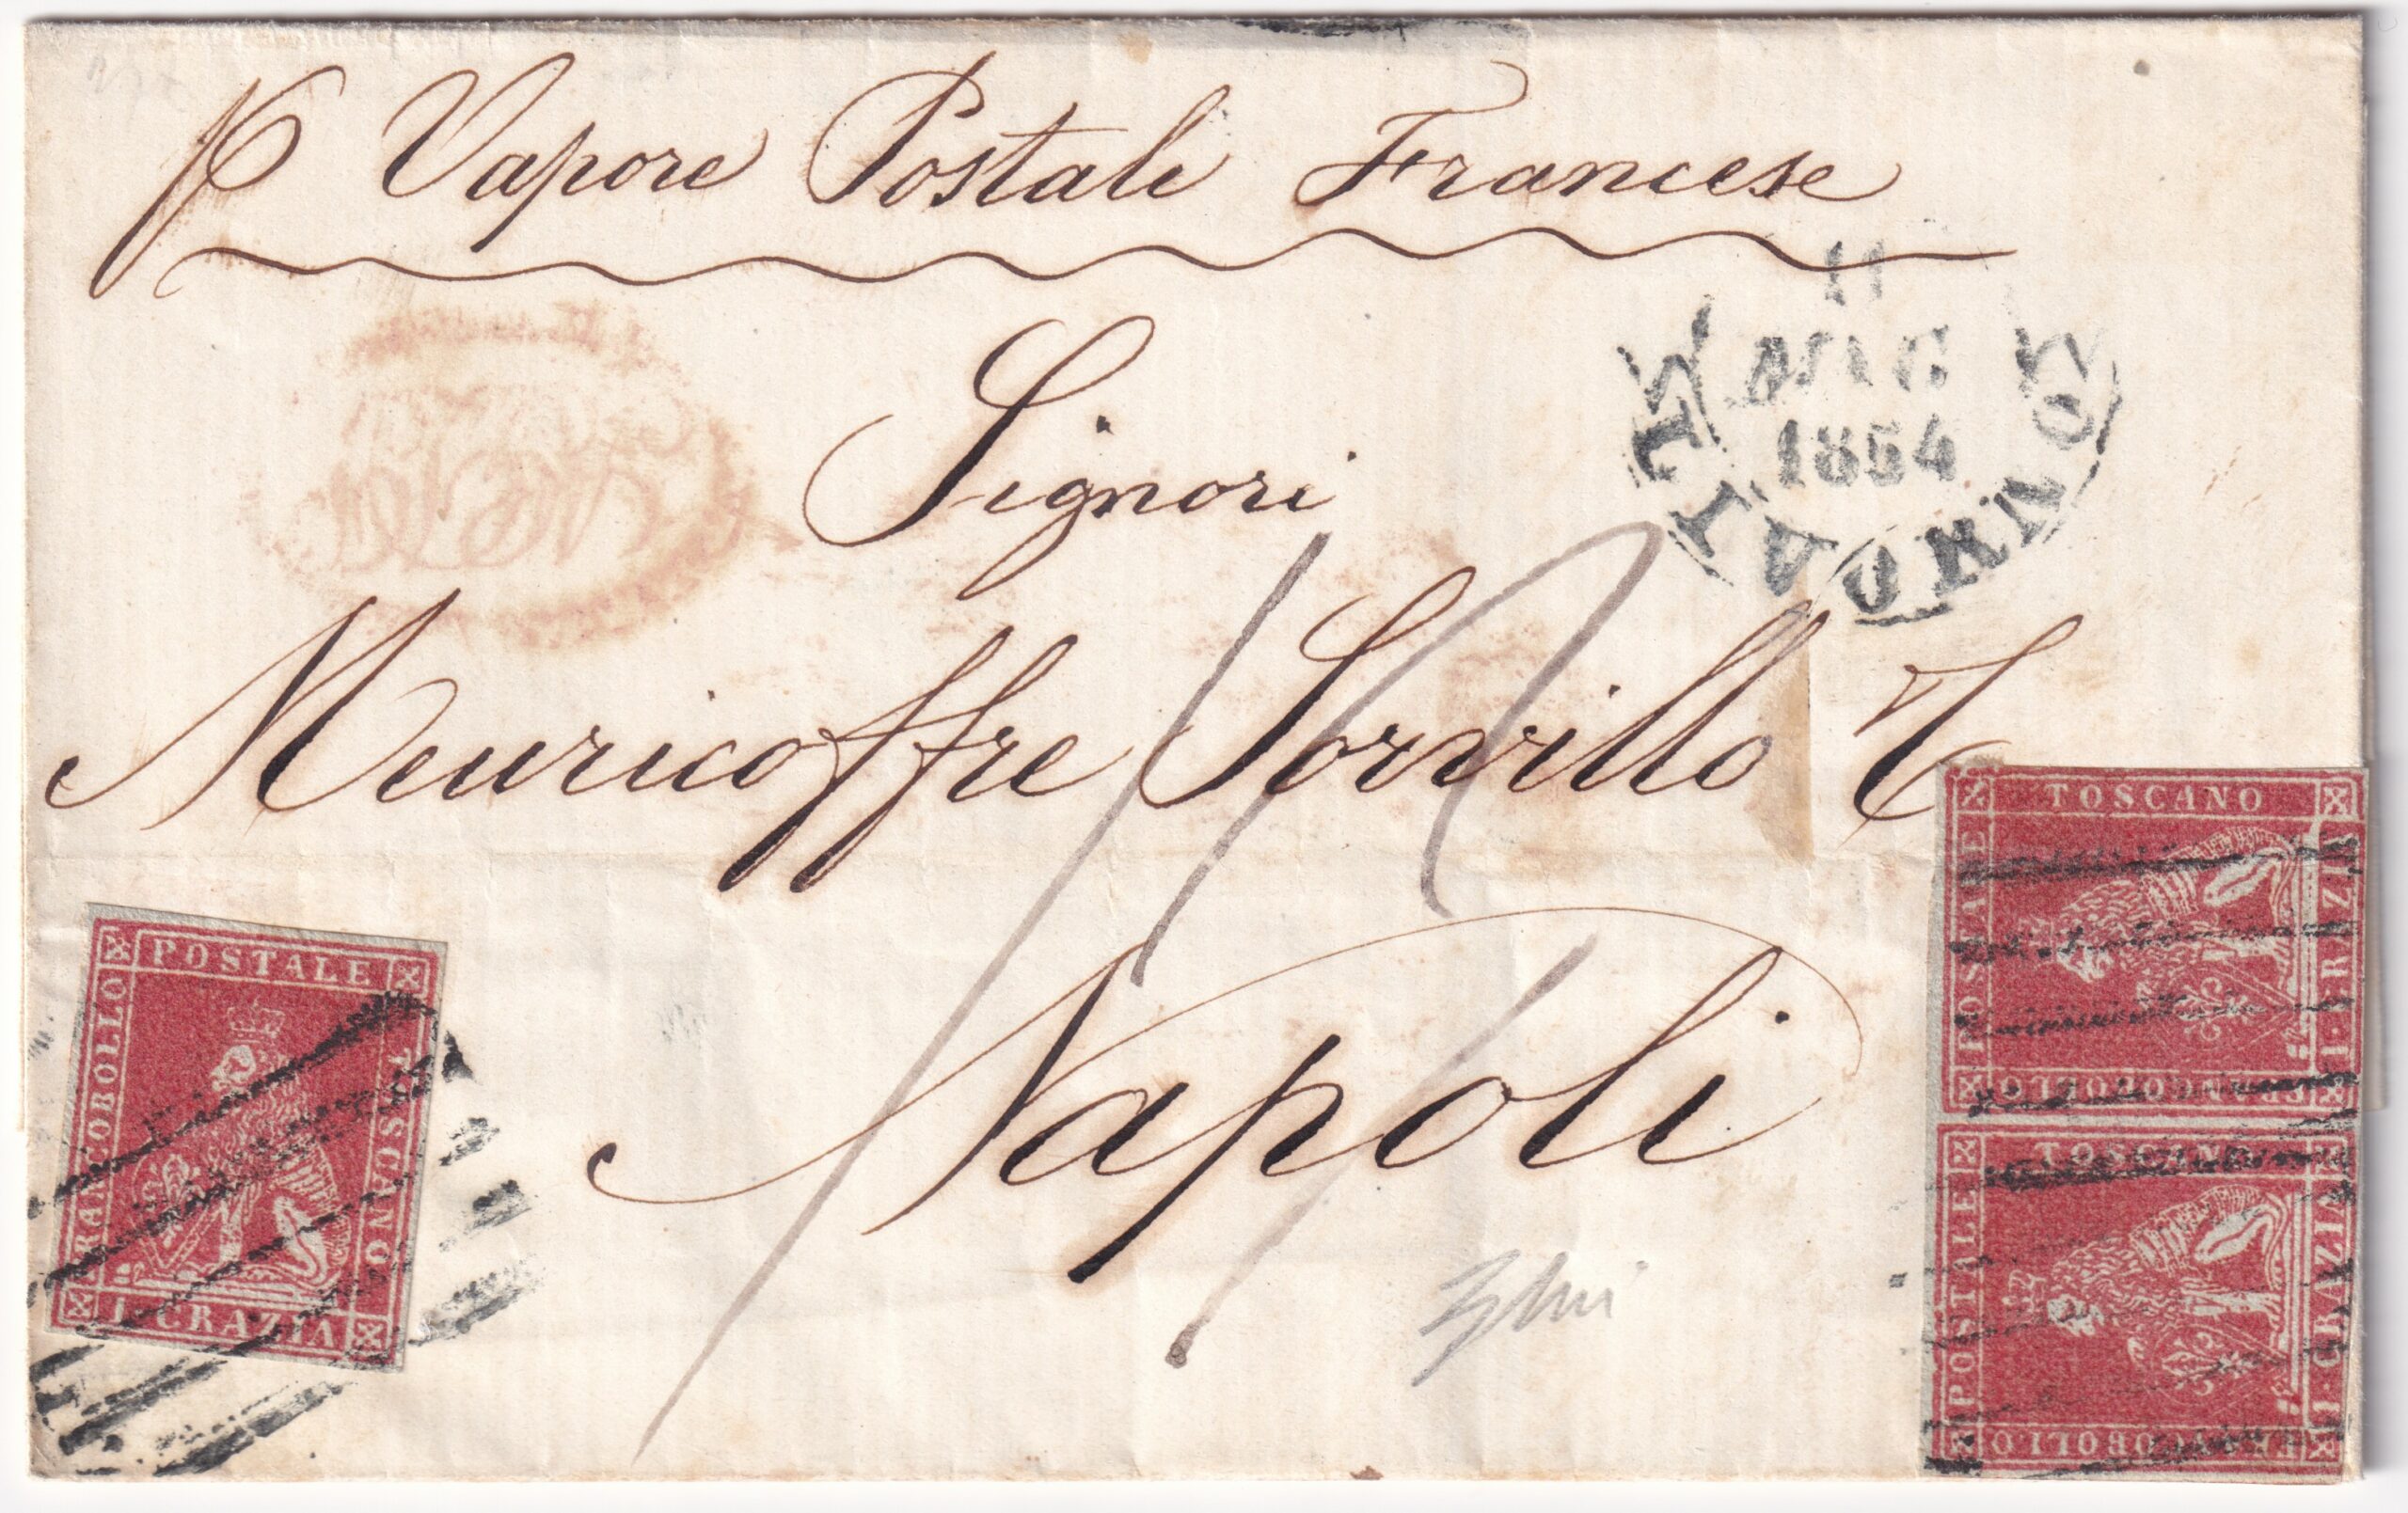 p Vapore Postale Francese
11
MAG
1854
Signori
Meuricoffre Sorvillo C
Napoli
POSTALE
FRANCOBOLLO
TOSCANO
1 CRAZIA
TOSCANO
POSTALE
FRANCOBOLLO
1 CRAZIA
TOSCANO
POSTALE
FRANCOBOLLO
1 CRAZIA